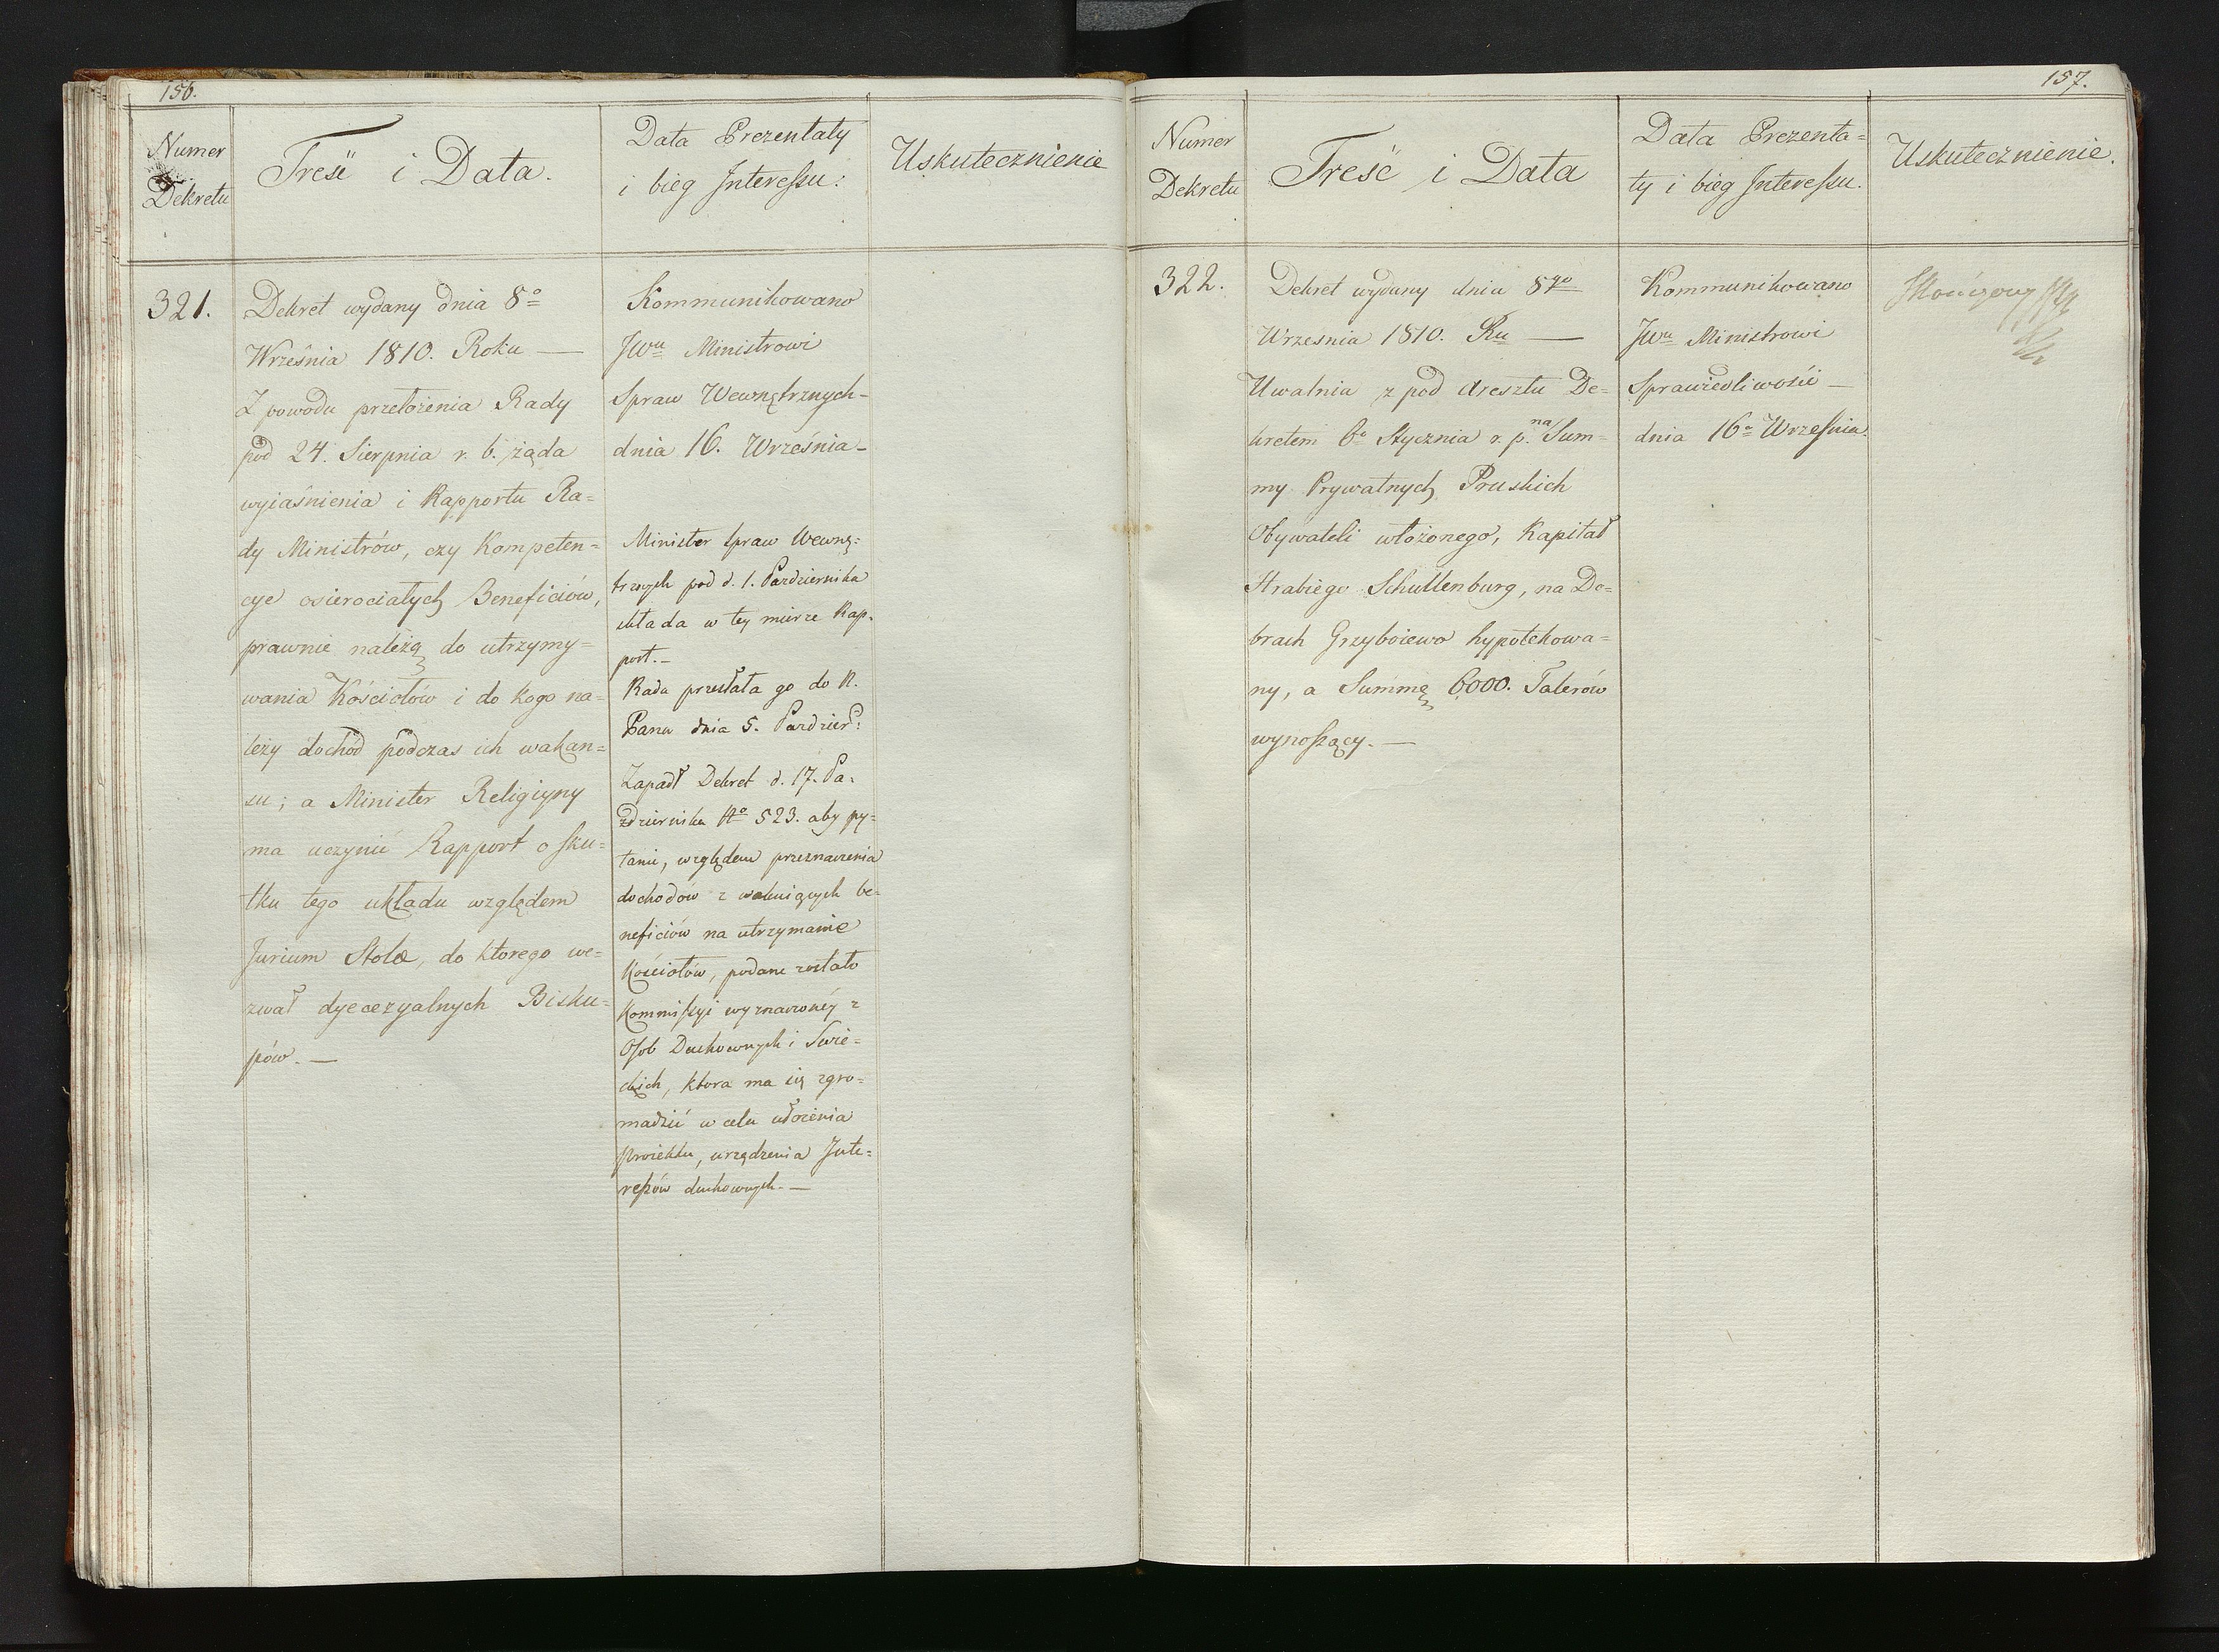 156.
Numer
Dekretu
Treść i Data.
Data Prezentaty
i bieg Interessu:
Uskutecznienie
321.
Dekret wydany dnia 8º
Września 1810. Roku —
Z powodu przełożenia Rady
pod 24. Sierpnia r. b. żąda
wyiaśnienia i Rapportu Ra=
dy Ministrów, czy Kompeten=
cye osierociałych Beneficiów,
prawnie należą do utrzymy=
wania Kościołów i do kogo na=
leży dochód podczas ich wakan=
su; a Minister Religiyny
ma uczynić Rapport o sku=
tku tego układu względem
Jurium Stolæ, do ktorego we=
zwał dyecezyalnych Bisku=
pów. —
Kommunikowano
JWu Ministrowi
Spraw Wewnętrznych—
dnia 16. Września—
Minister Spraw Wewnę=
trznych pod d. 1. Pazdziernika
składa w tey mierze Rap=
port.—
Rada przesłała go do N.
Pana dnia 5. Pazdzier:
Zapadł Dekret d. 17. Pa=
zdziernika Nº 523. aby py=
tanie, względem przeznaczenia
dochodów z wakuiących be=
neficiów na utrzymanie
Kościołów, podane zostało
Kommissyi wyznaczonéy z
Osob Duchownych i Swie=
ckich, ktora ma się zgro=
madzić w celu ułożenia
Proiektu, urządzenia Inte=
ressów duchownych.—
157.
Numer
Dekretu
Treść i Data
Data Prezenta=
ty i bieg Interessu.
Uskutecznienie.
322.
Dekret wydany dnia 8go
Września 1810. Ru —
Uwalnia z pod Aresztu De=
kretem 6º Stycznia r. p. na Sum=
my Prywatnych Pruskich
Obywateli włożonego, Kapitał
Hrabiego Schullenburg, na Do=
brach Grzyboiewo hypotekowa=
ny, a Summę 6,000. Talerów
wynoszący. —
Kommunikowano
JWu Ministrowi
Sprawiedliwości —
dnia 16º Września.
Skończony